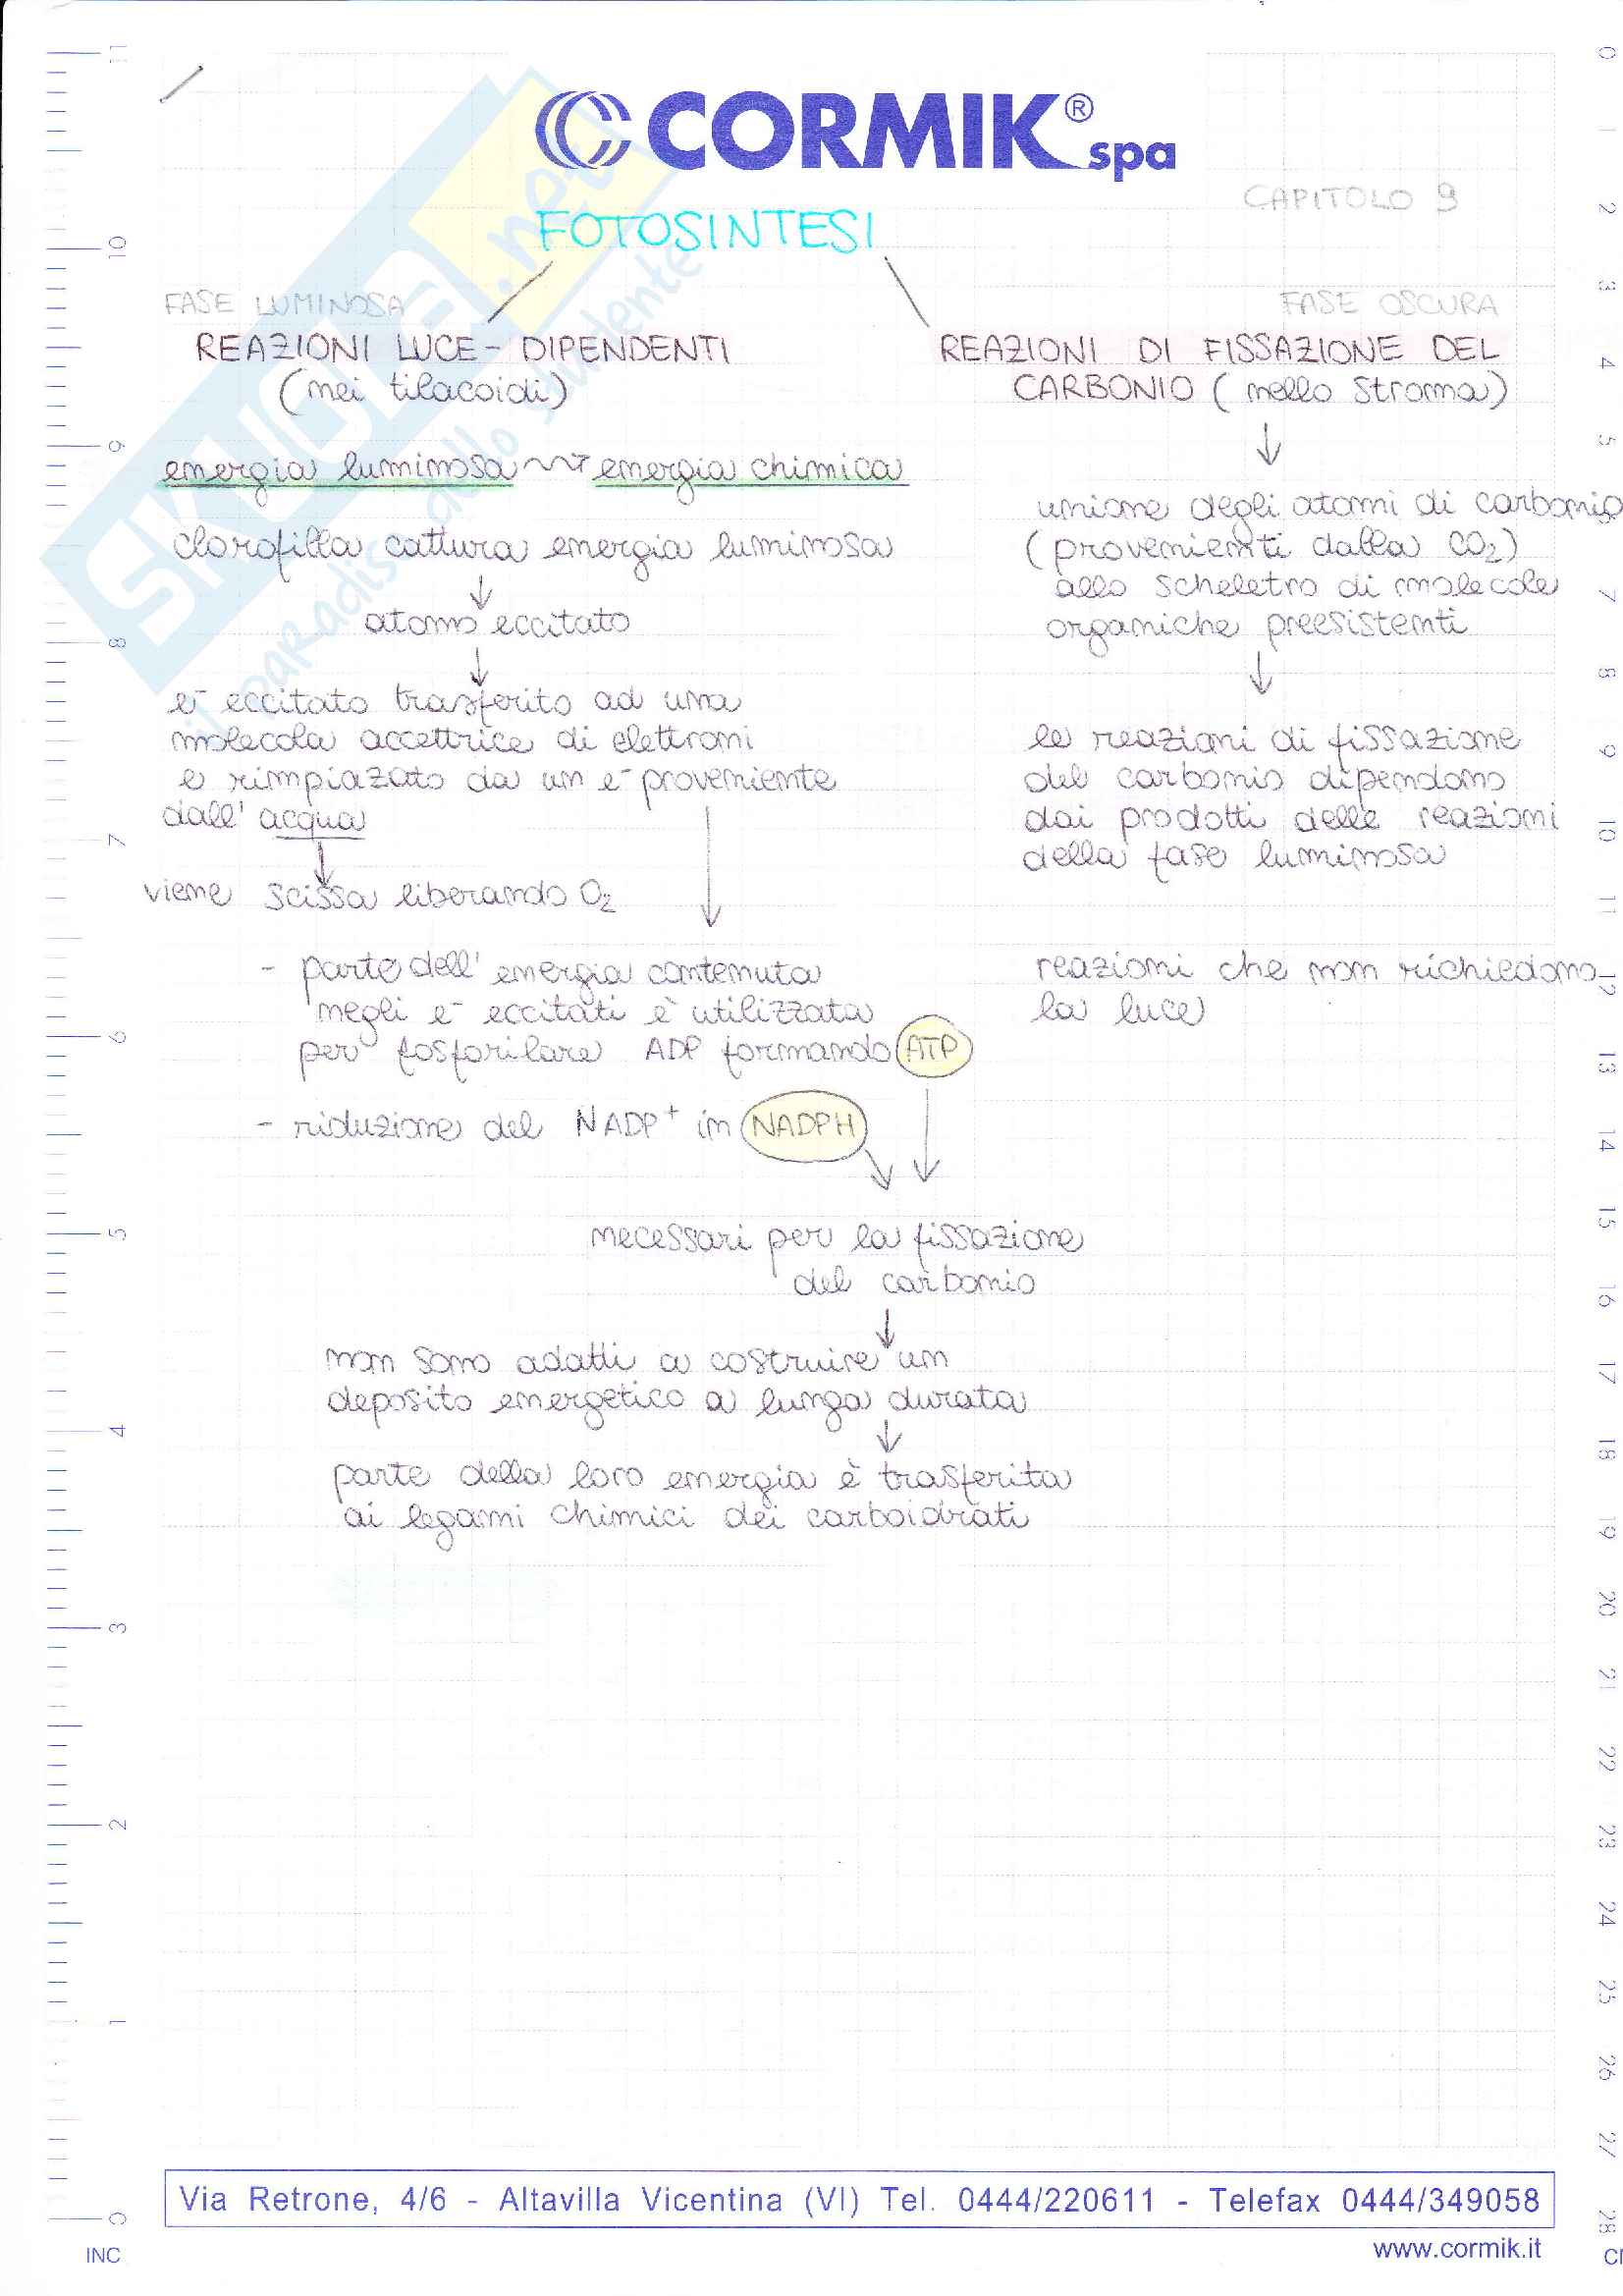 CORMIK® spa
CAPITOLO 9
FOTOSINTESI
FASE LUMINOSA
REAZIONI LUCE-DIPENDENTI
(nei tilacoidi)
energia luminosa energia chimica
clorofilla cattura energia luminosa
atomo eccitato
e⁻ eccitato trasferito ad una
molecola accettrice di elettroni
e rimpiazato da un e⁻ proveniente
dall'acqua
viene scissa liberando O₂
- parte dell'energia contenuta
negli e⁻ eccitati è utilizzata
per fosforilare ADP formando ATP
- riduzione del NADP⁺ in NADPH
FASE OSCURA
REAZIONI DI FISSAZIONE DEL
CARBONIO (nello stroma)
unione degli atomi di carbonio
(provenienti dalla CO₂)
allo scheletro di molecole
organiche preesistenti
le reazioni di fissazione
del carbonio dipendono
dai prodotti delle reazioni
della fase luminosa
reazioni che non richiedono
la luce
necessari per la fissazione
del carbonio
non sono adatti a costruire un
deposito energetico a lunga durata
parte della loro energia è trasferita
ai legami chimici dei carboidrati
SKUOLA.net
il paradiso dello studente
11
10
9
8
7
6
5
4
3
2
1
0
INC
0
1
2
3
4
5
6
7
8
9
10
11
12
13
14
15
16
17
18
19
20
21
22
23
24
25
26
27
28
Via Retrone, 4/6 - Altavilla Vicentina (VI) Tel. 0444/220611 - Telefax 0444/349058
www.cormik.it